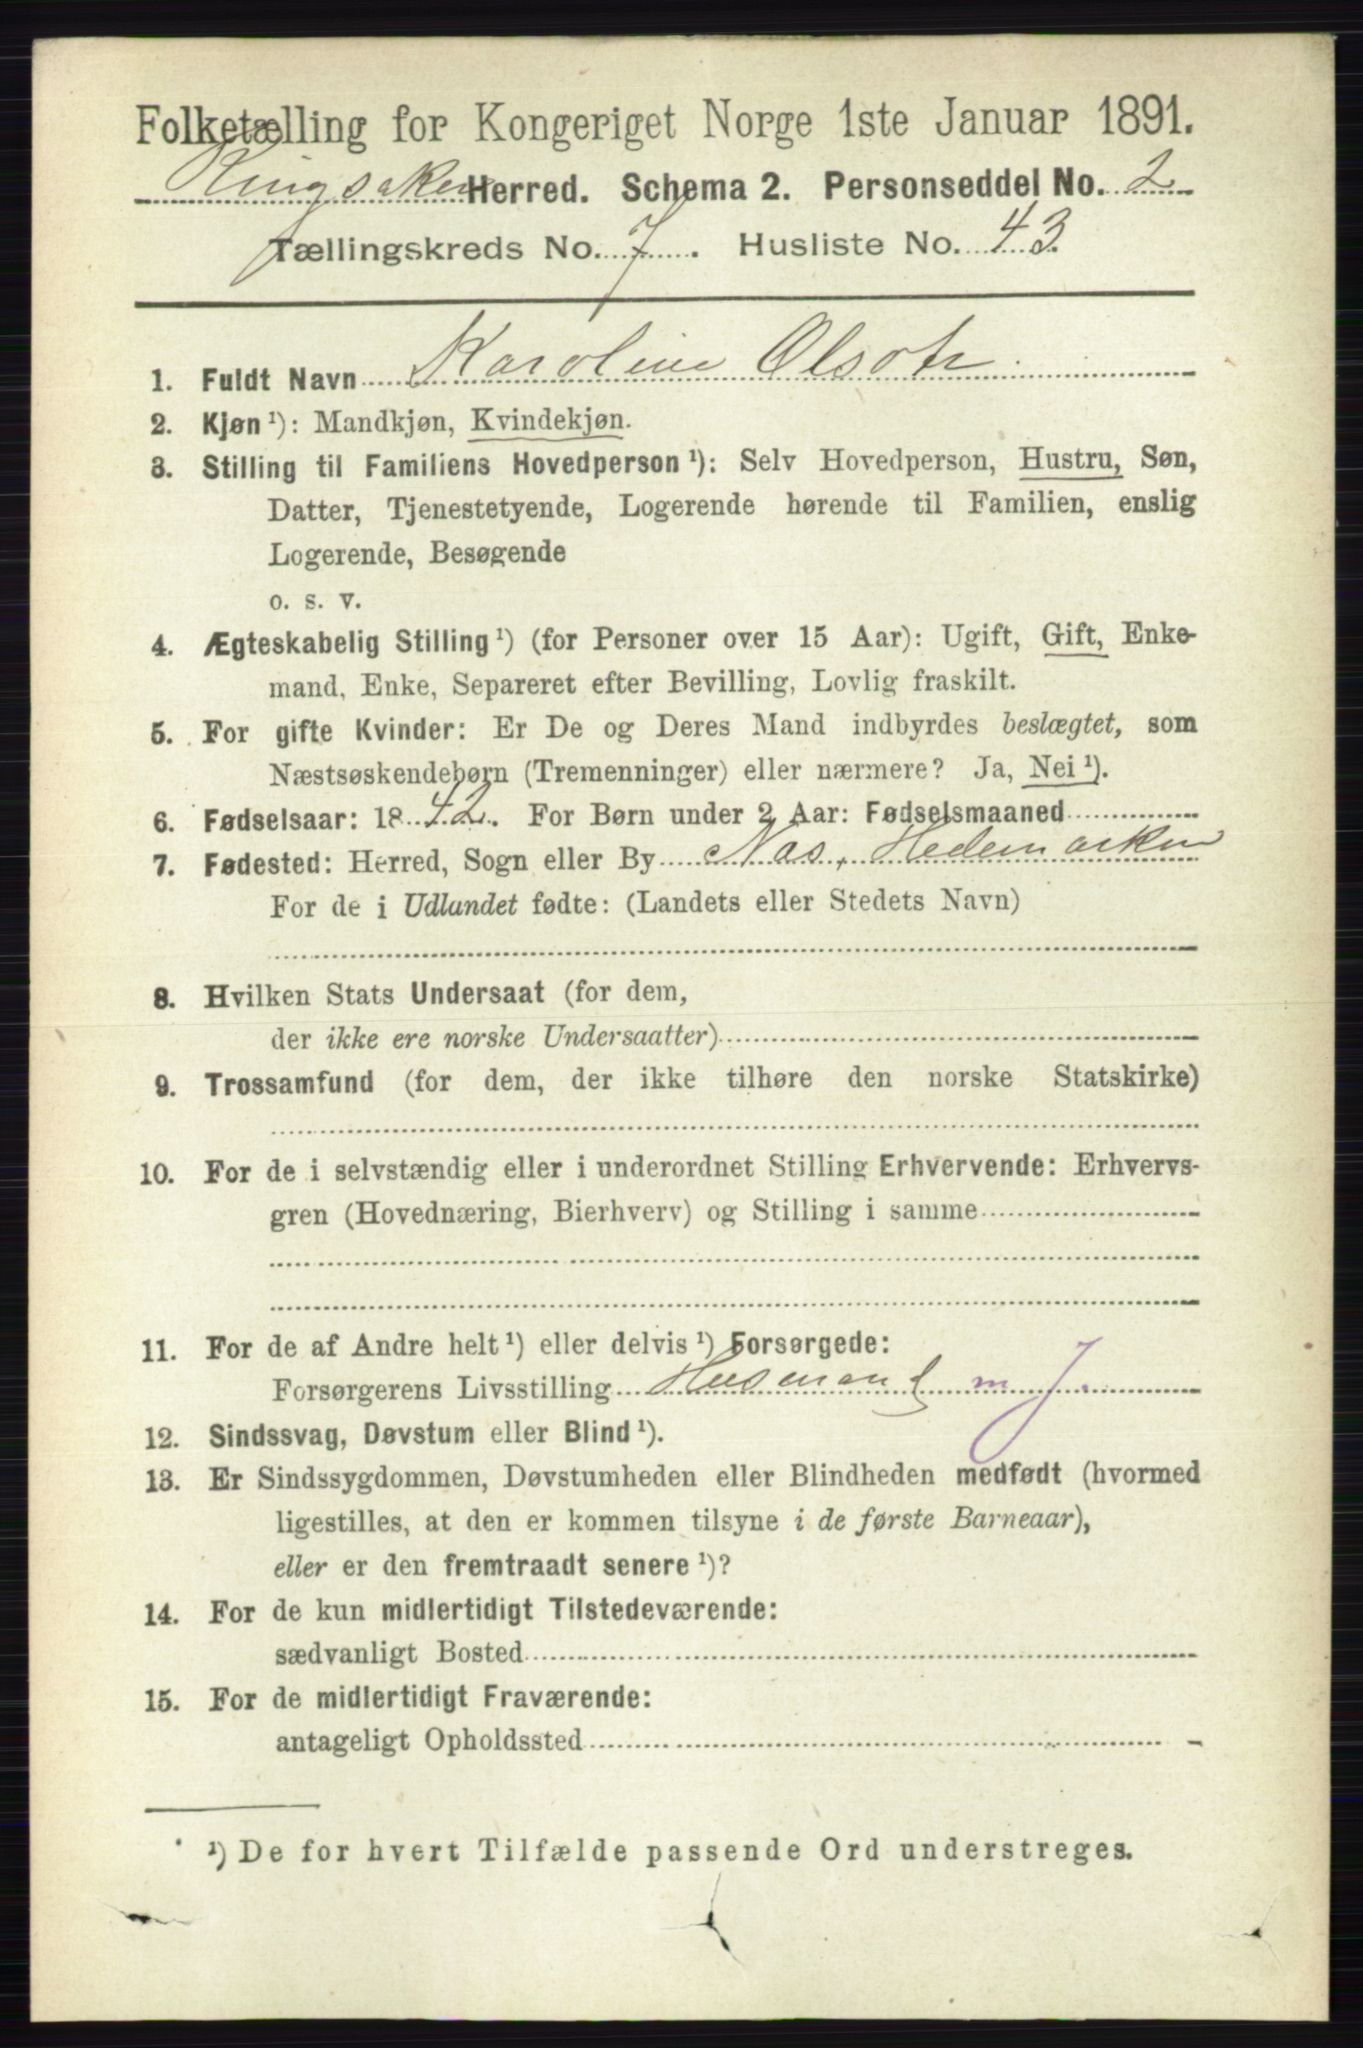 Folketælling for Kongeriget Norge 1ste Januar 1891.
Ringsaker Herred. Schema 2. Personseddel No. 2
Tællingskreds No. 7. Husliste No. 43
1. Fuldt Navn Karoline Olsdtr
2. Kjøn ¹): Mandkjøn, Kvindekjøn.
3. Stilling til Familiens Hovedperson ¹): Selv Hovedperson, Hustru, Søn,
Datter, Tjenestetyende, Logerende hørende til Familien, enslig
Logerende, Besøgende
o. s. v.
4. Ægteskabelig Stilling ¹) (for Personer over 15 Aar): Ugift, Gift, Enke-
mand, Enke, Separeret efter Bevilling, Lovlig fraskilt.
5. For gifte Kvinder: Er De og Deres Mand indbyrdes beslægtet, som
Næstsøskendebørn (Tremenninger) eller nærmere? Ja, Nei ¹).
6. Fødselsaar: 1842. For Børn under 2 Aar: Fødselsmaaned
7. Fødested: Herred, Sogn eller By Næs, Hedemarken
For de i Udlandet fødte: (Landets eller Stedets Navn)
8. Hvilken Stats Undersaat (for dem,
der ikke ere norske Undersaatter)
9. Trossamfund (for dem, der ikke tilhøre den norske Statskirke)
10. For de i selvstændig eller i underordnet Stilling Erhvervende: Erhvervs-
gren (Hovednæring, Bierhverv) og Stilling i samme
11. For de af Andre helt ¹) eller delvis ¹) Forsørgede:
Forsørgerens Livsstilling Husmand m J.
12. Sindssvag, Døvstum eller Blind ¹).
13. Er Sindssygdommen, Døvstumheden eller Blindheden medfødt (hvormed
ligestilles, at den er kommen tilsyne i de første Barneaar),
eller er den fremtraadt senere ¹)?
14. For de kun midlertidigt Tilstedeværende:
sædvanligt Bosted
15. For de midlertidigt Fraværende:
antageligt Opholdssted
¹) De for hvert Tilfælde passende Ord understreges.